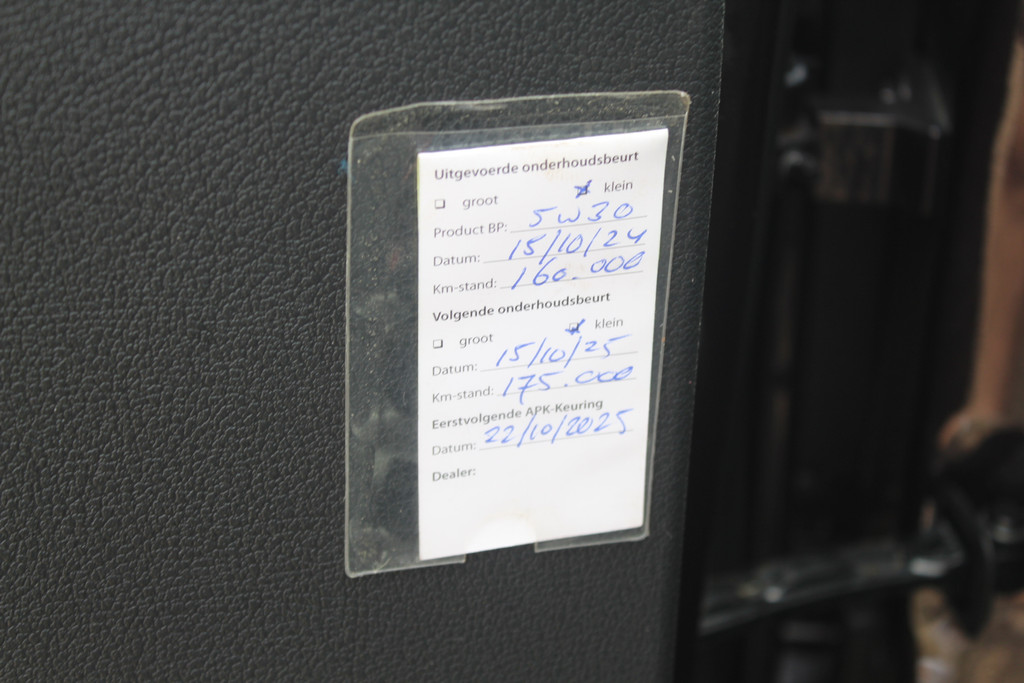 Uitgevoerde onderhoudsbeurt
groot klein
Product BP: 5w30
Datum: 15/10/24
Km-stand: 160.000
Volgende onderhoudsbeurt
groot klein
Datum: 15/10/25
Km-stand: 175.000
Eerstvolgende APK-Keuring
Datum: 22/10/2025
Dealer: